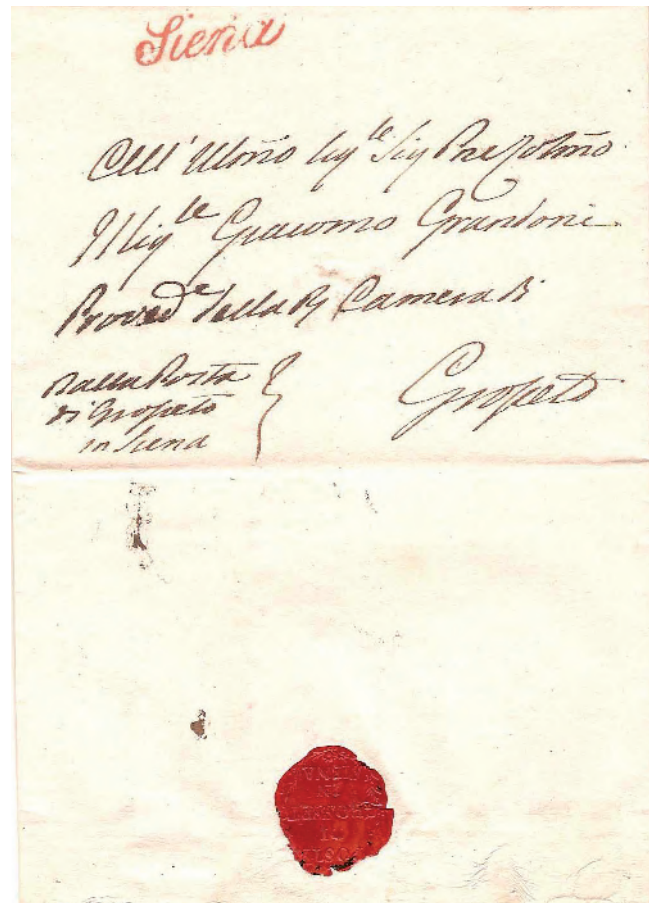 Siena
All' Illmo Sig.le Sig Pne Colmo
Il Sig.le Giacomo Grandoni
Proved.e della R Camera di
Grosseto
Dalla Posta
di Grosseto
in Siena